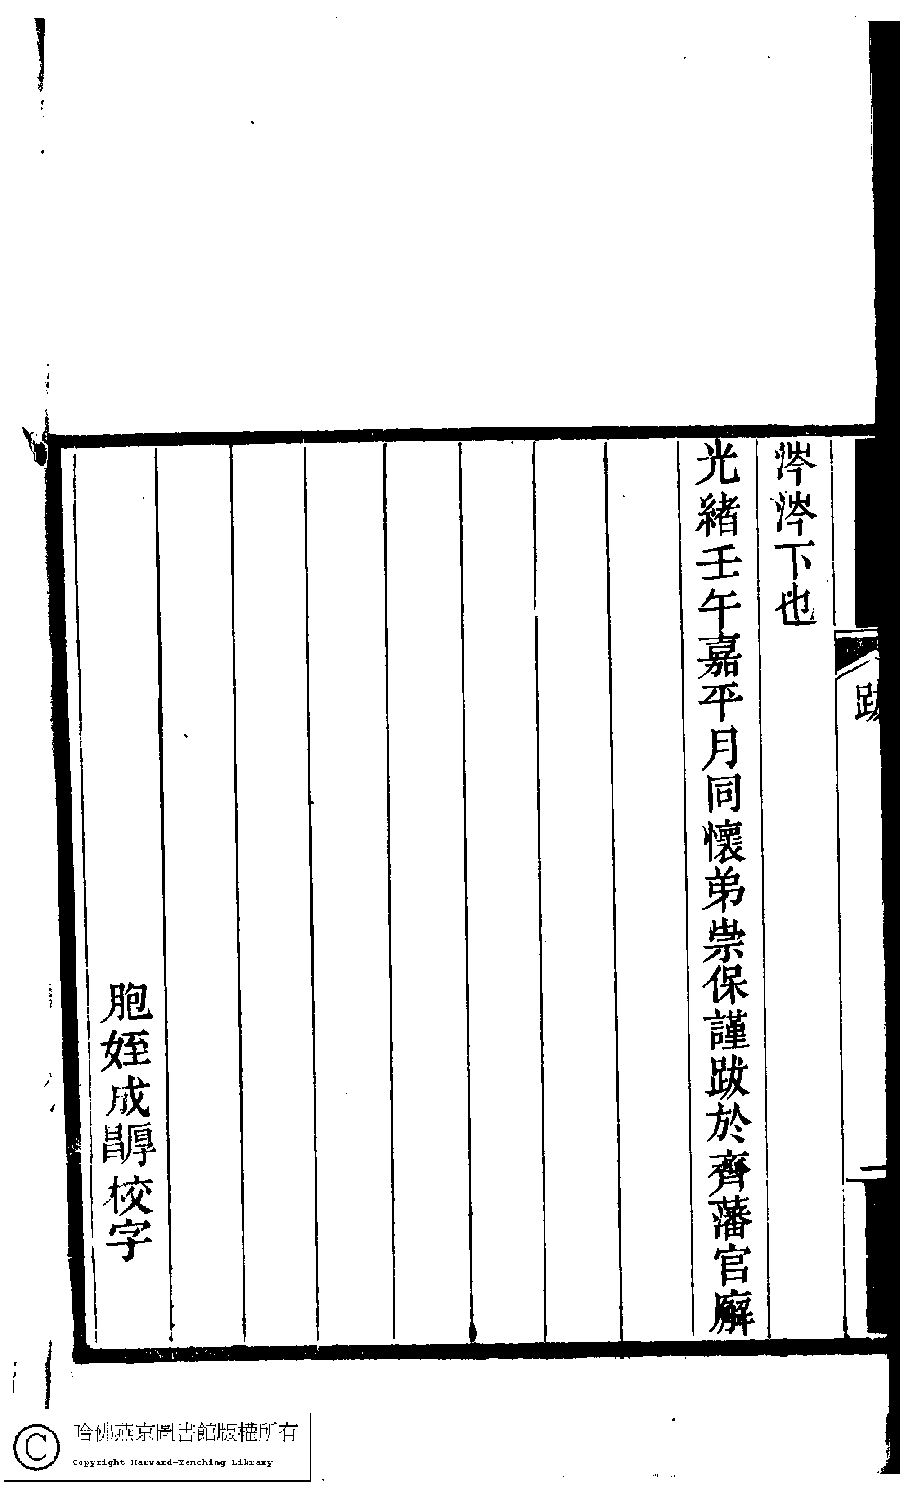 跋
涔涔下也
光緒壬午嘉平月同懷弟崇保謹跋於齊藩官廨
胞姪成校字
哈佛燕京圖書館版權所有
© Copyright Harvard-Yenching Library